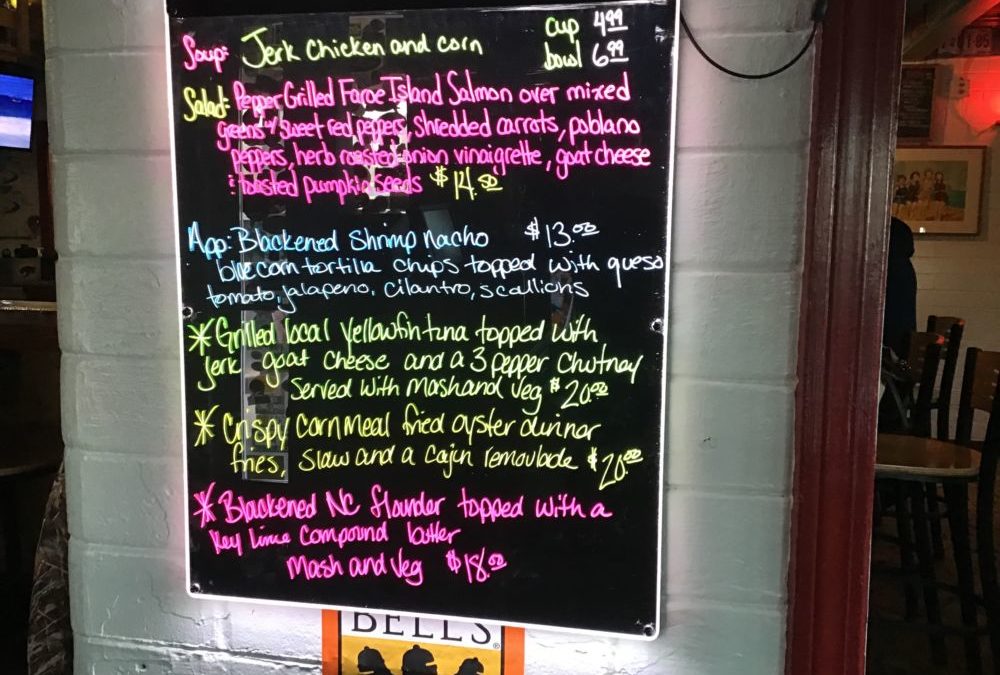 Soup: Jerk Chicken and corn cup 4.99
bowl 6.99
Salad: Pepper Grilled Faroe Island Salmon over mixed
greens w/ sweet red peppers, shredded carrots, poblano
peppers, herb roasted onion vinaigrette, goat cheese
& toasted pumpkin seeds $14.50
App: Blackened Shrimp nacho $13.00
blue corn tortilla chips topped with queso
tomato, jalapeno, cilantro, scallions
* Grilled local yellowfin tuna topped with
jerk goat cheese and a 3 pepper chutney
Served with mash and veg $20.00
* Crispy cornmeal fried oyster dinner
fries, slaw and a cajun remoulade $20.00
* Blackened NC flounder topped with a
key lime compound butter
Mash and veg $18.00
BELL'S